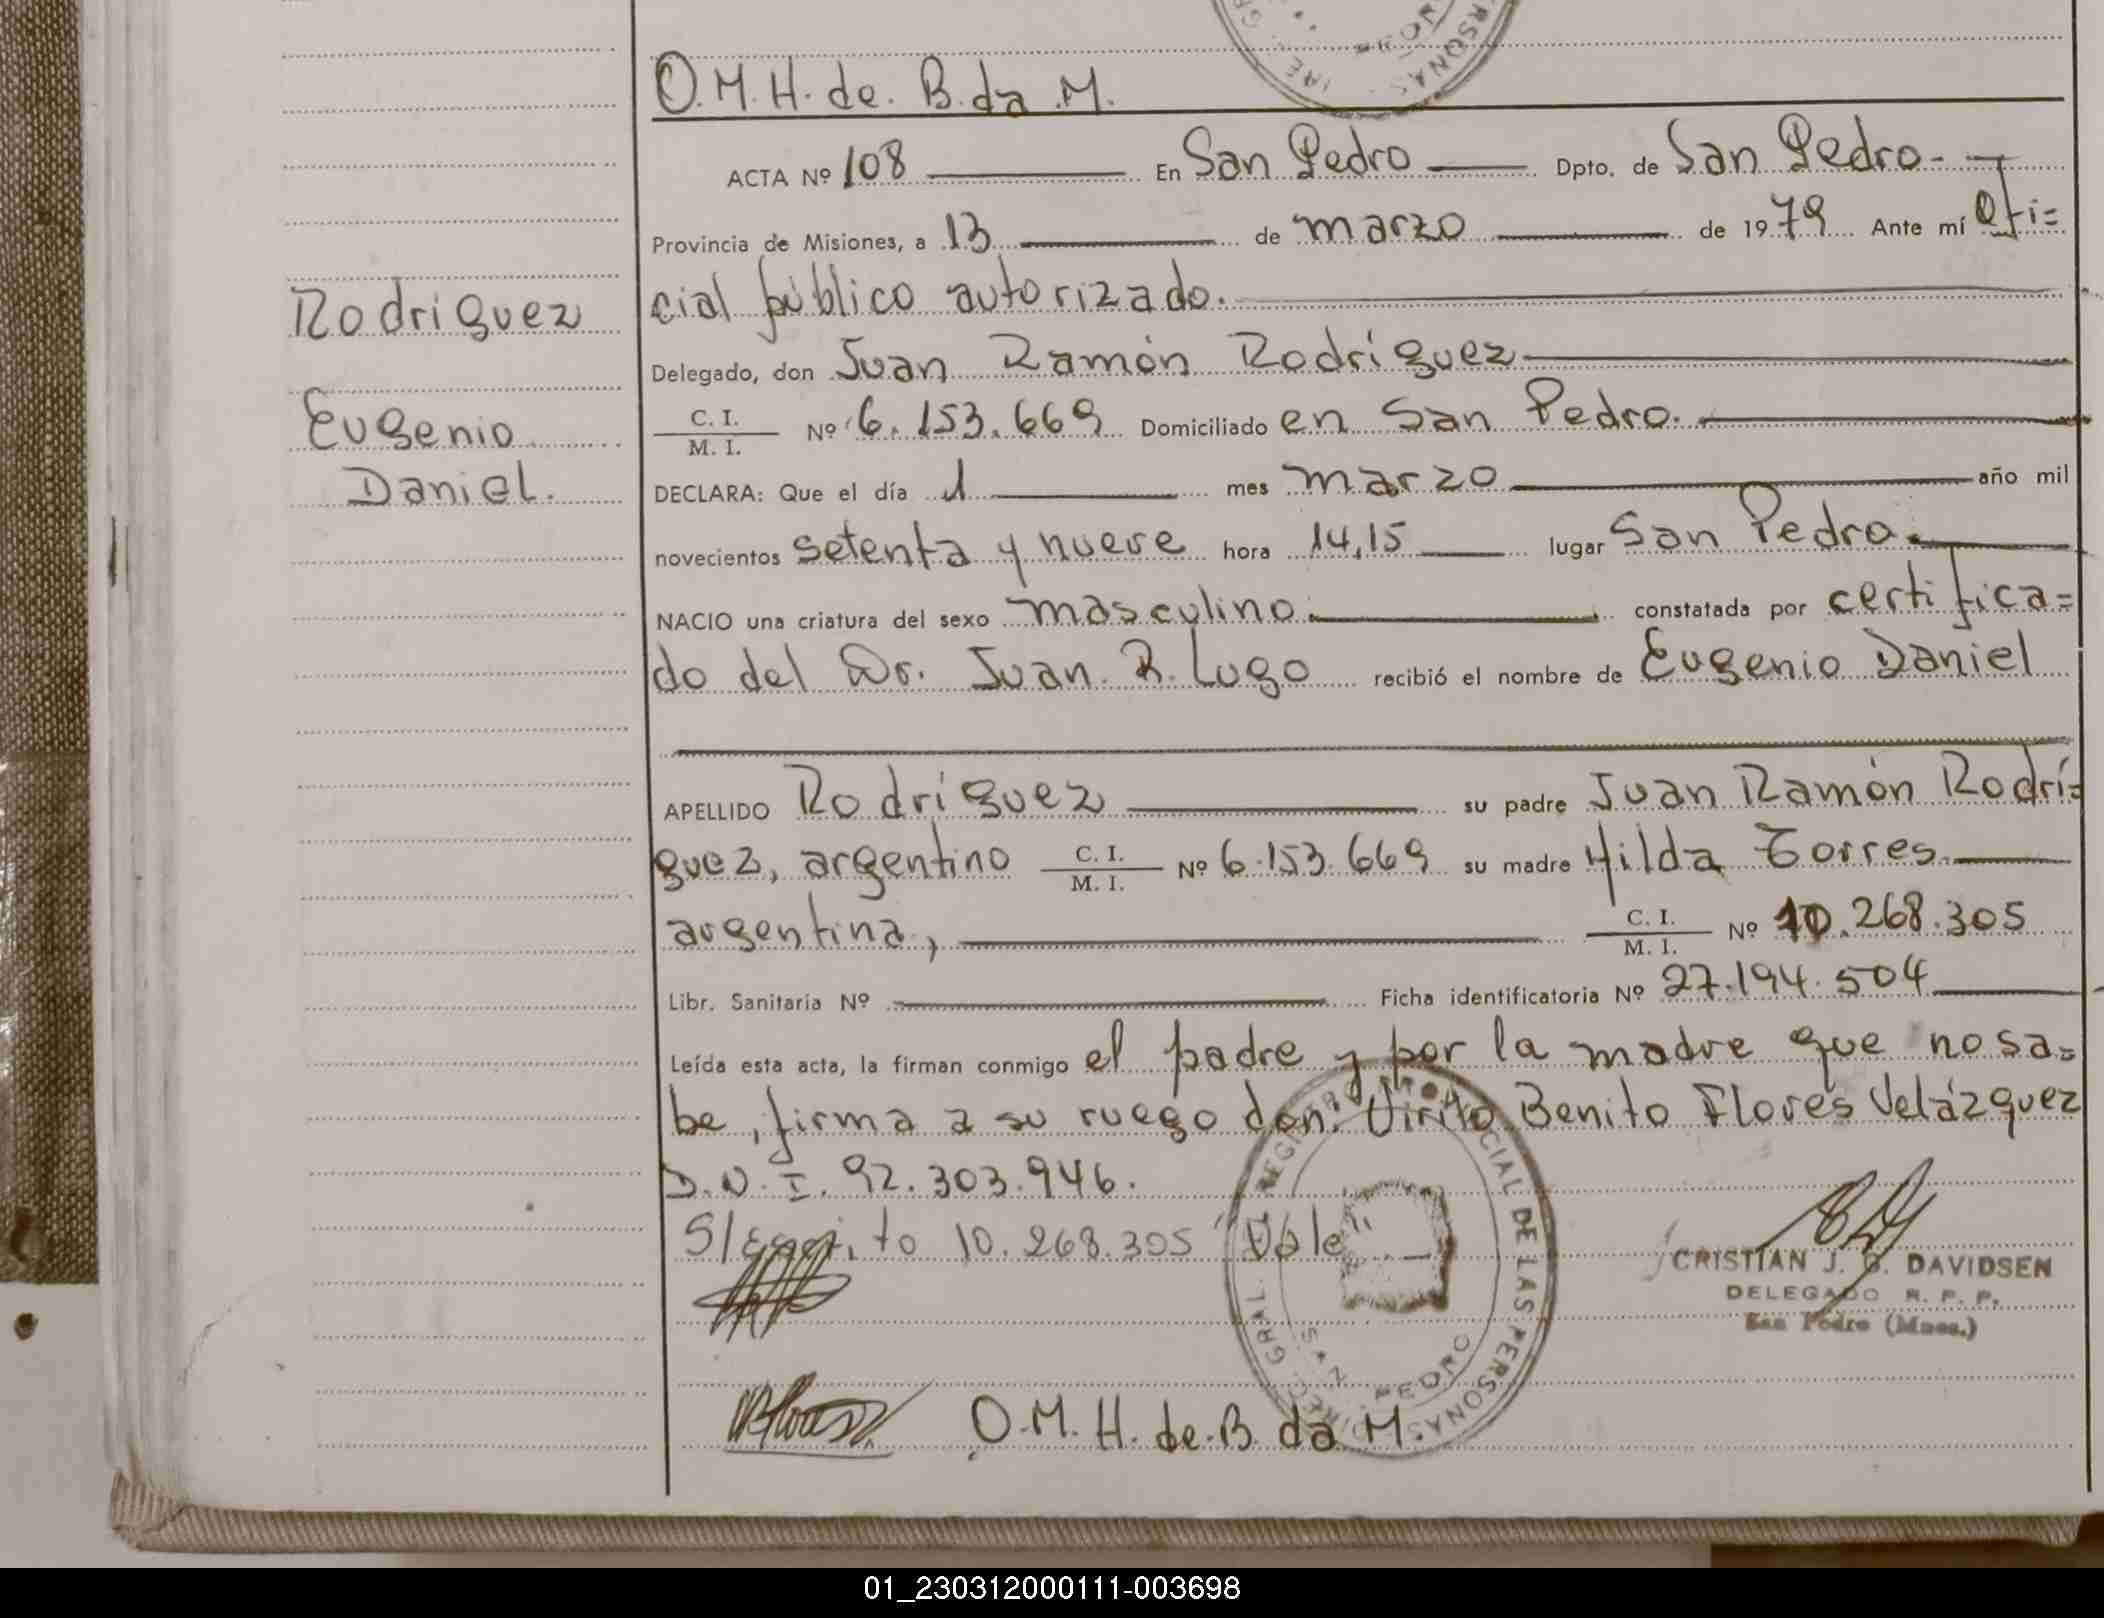 O.M.H. de. B. da M.
ACTA Nº 108 En San Pedro Dpto. de San Pedro-
Provincia de Misiones, a 13 de marzo de 1979 Ante mí Ofi=
cial público autorizado.
Rodriguez
Delegado, don Juan Ramón Rodríguez
C. I.
M. I. Nº 6.153.669 Domiciliado en San Pedro.
Eugenio
Daniel.
DECLARA: Que el día 1 mes marzo año mil
novecientos setenta y nueve hora 14,15 lugar San Pedro.
NACIO una criatura del sexo masculino. constatada por certifica=
do del Dr. Juan R. Lugo recibió el nombre de Eugenio Daniel
APELLIDO Rodríguez su padre Juan Ramón Rodrí=
guez, argentino C. I. M. I. Nº 6.153.669 su madre Hilda Torres.
argentina, C. I. M. I. Nº 10.268.305
Libr. Sanitaria Nº Ficha identificatoria Nº 27.194.504
Leída esta acta, la firman conmigo el padre y por la madre que no sa=
be, firma a su ruego don: Benito Flores Velázquez
D.N.I. 92.303.946.
10.268.305 "Vale"
CRISTIAN J. G. DAVIDSEN
DELEGADO R. P. P.
San Pedro (Mnes.)
O.M.H. de. B. da M.
DIREC. GRAL. REGISTRO PROVINCIAL DE LAS PERSONAS
SAN PEDRO
01_230312000111-003698